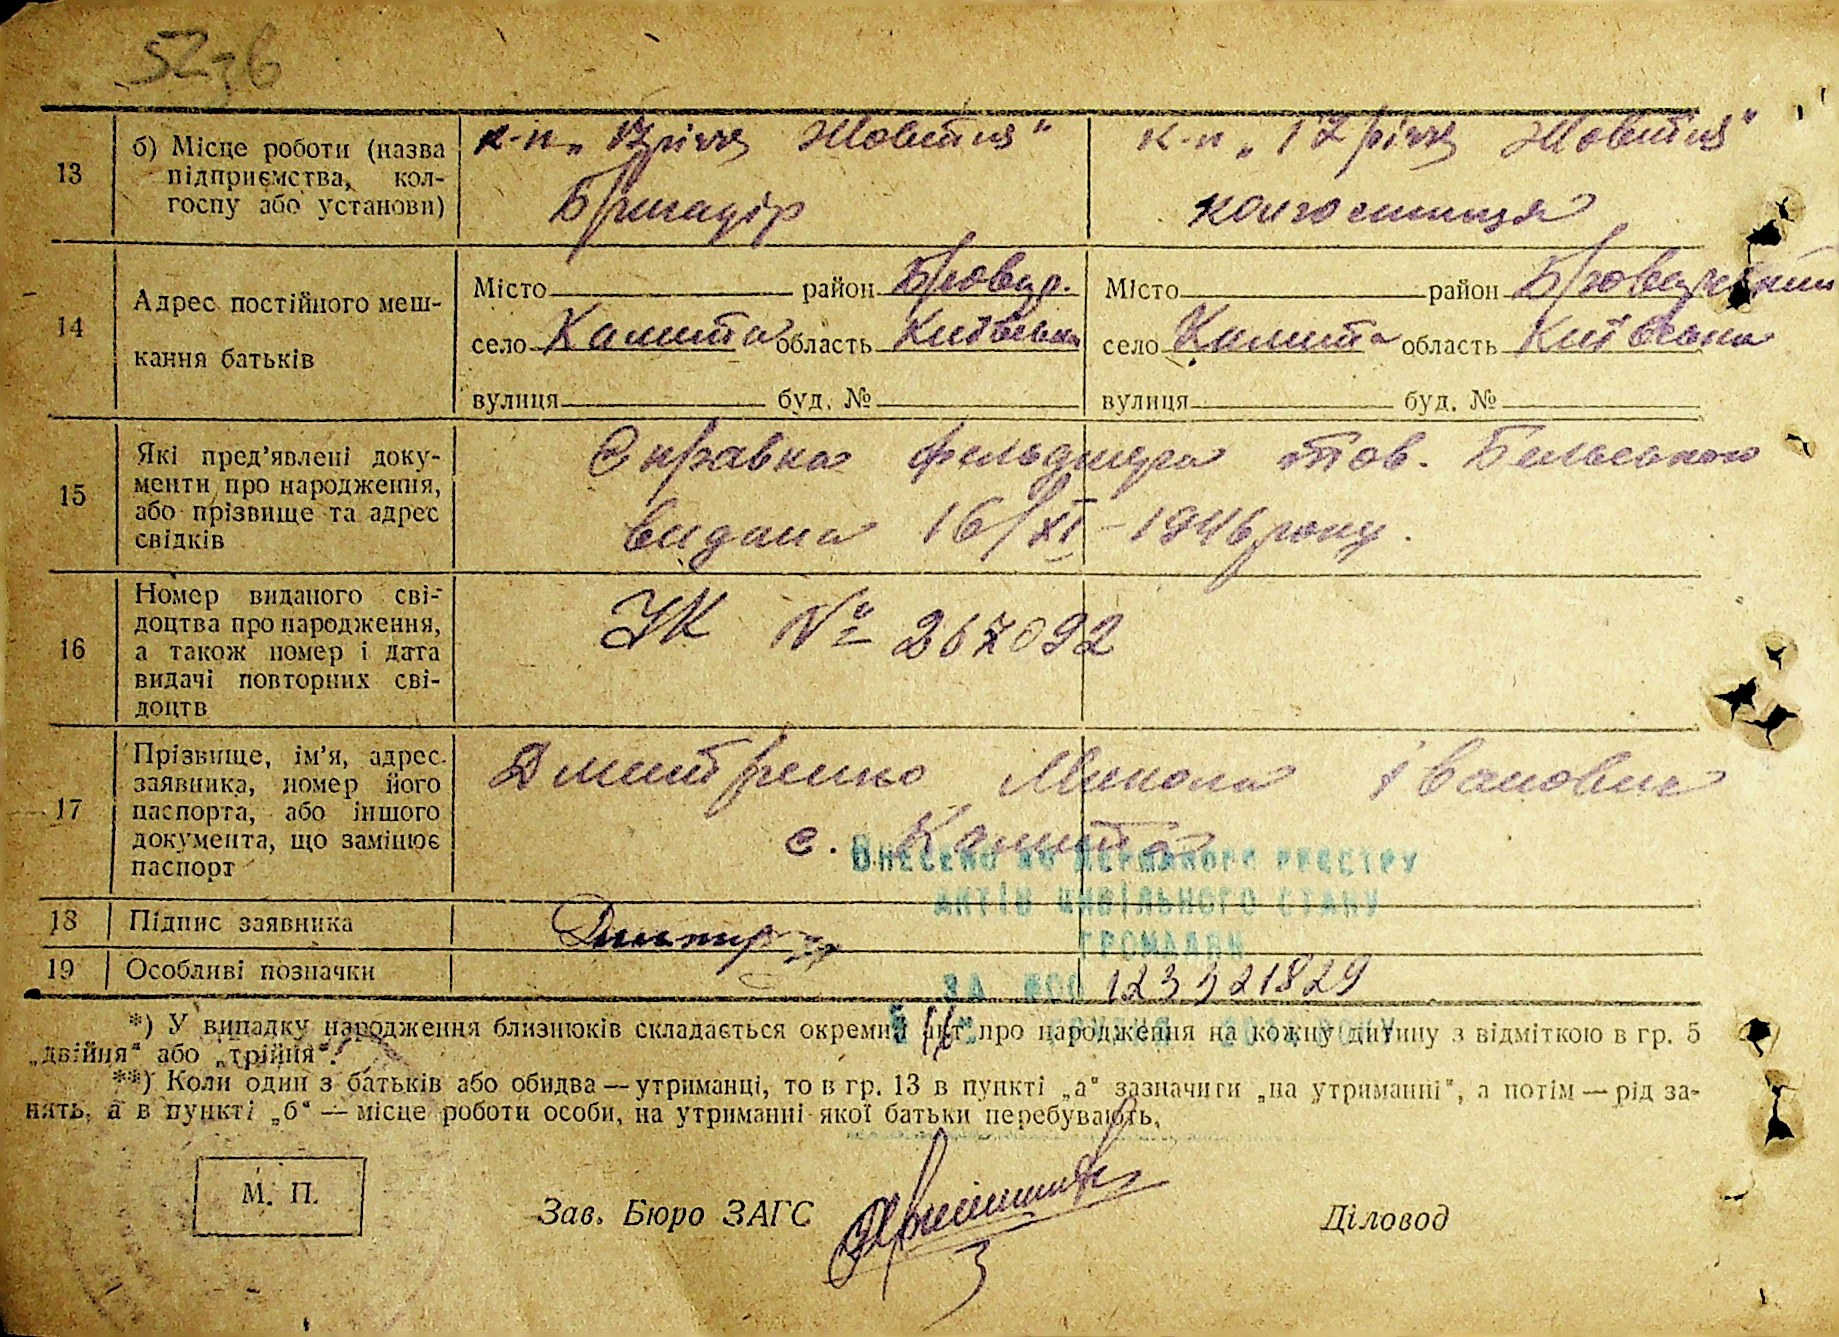 13
б) Місце роботи (назва підприємства, колгоспу або установи)
к-п „17 річчя Жовтня"
Бригадір
к-п „17 річчя Жовтня"
колгоспниця
14
Адрес постійного мешкання батьків
Місто район Бровар.
село Калита область Київська
вулиця буд. №
Місто район Броварський
село Калита область Київська
вулиця буд. №
15
Які пред'явлені документи про народження, або прізвище та адрес свідків
Справка фельдшера тов. Бельського
видана 16/XI-1946 року.
16
Номер виданого свідоцтва про народження, а також номер і дата видачі повторних свідоцтв
УК № 267092
17
Прізвище, ім'я, адрес заявника, номер його паспорта, або іншого документа, що замінює паспорт
Дмитренко Микола Іванович
с. Калита
Внесено до Державного реєстру
актів цивільного стану
громадян
за №00 123321829
18
Підпис заявника
19
Особливі позначки
*) У випадку народження близнюків складається окремий акт про народження на кожну дитину з відміткою в гр. 5
„двійня" або „трійня".
**) Коли один з батьків або обидва — утриманці, то в гр. 13 в пункті „а" зазначити „на утриманні", а потім — рід за-
нять, а в пункті „б" — місце роботи особи, на утриманні якої батьки перебувають.
М. П.
Зав. Бюро ЗАГС
Діловод